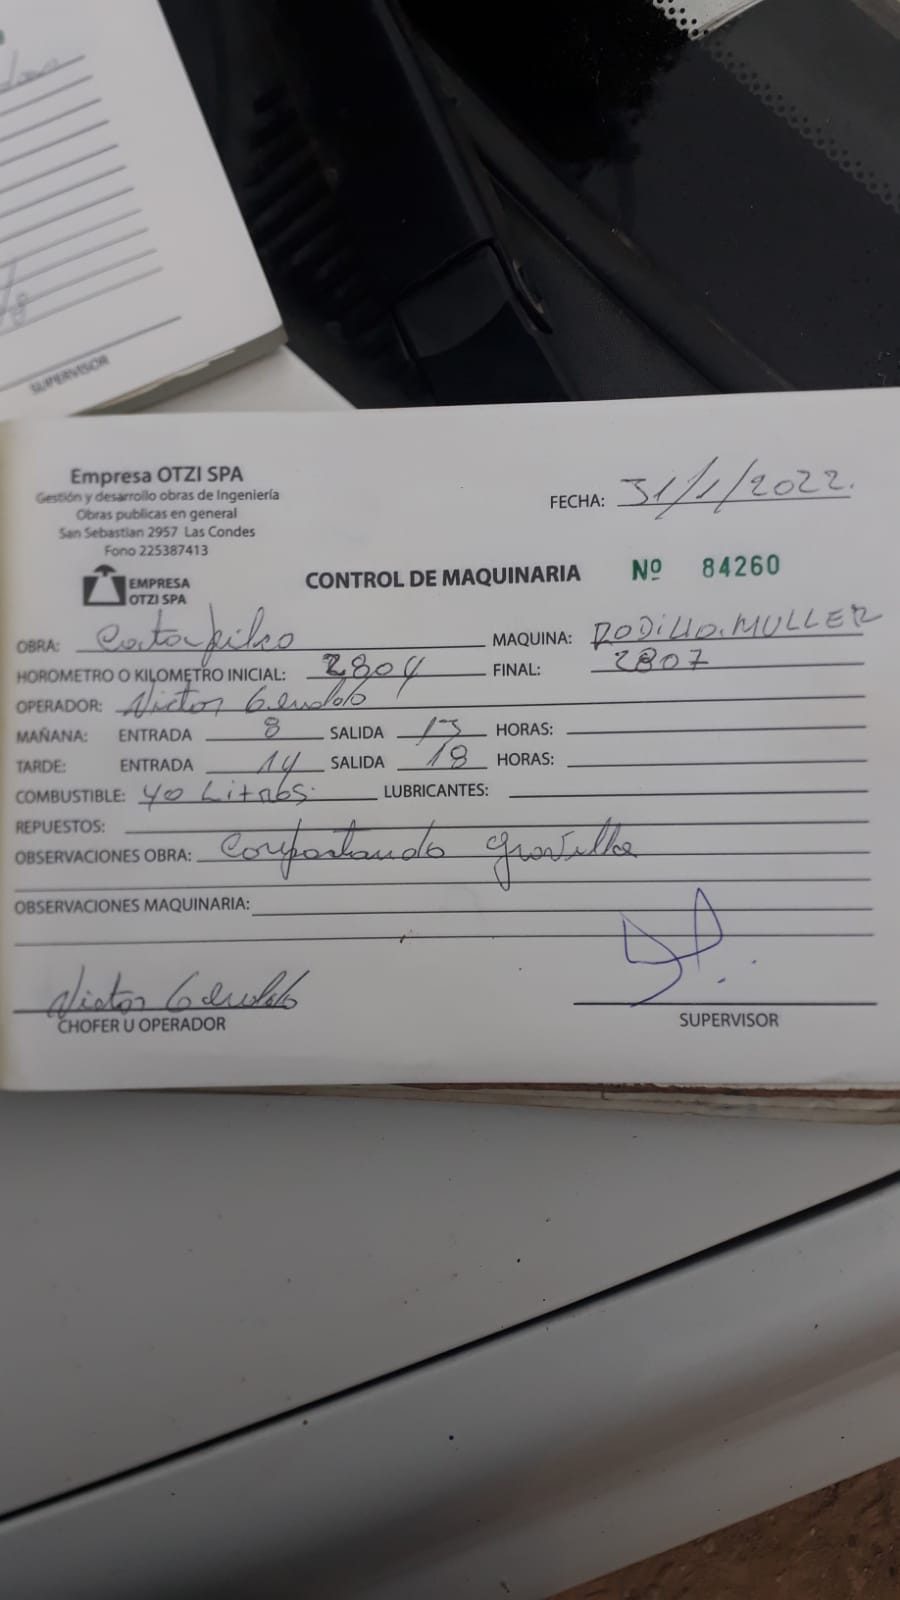 SUPERVISOR
Empresa OTZI SPA
Gestión y desarrollo obras de Ingeniería
Obras publicas en general
San Sebastian 2957 Las Condes
Fono 225387413
EMPRESA
OTZI SPA
FECHA: 31/1/2022.
CONTROL DE MAQUINARIA Nº 84260
OBRA: Catapilco MAQUINA: RODILLO.MULLER
HOROMETRO O KILOMETRO INICIAL: 2804 FINAL: 2807
OPERADOR: Victor
MAÑANA: ENTRADA 8 SALIDA 13 HORAS:
TARDE: ENTRADA 14 SALIDA 18 HORAS:
COMBUSTIBLE: 40 Litros. LUBRICANTES:
REPUESTOS:
OBSERVACIONES OBRA: Compactando gravilla
OBSERVACIONES MAQUINARIA:
Victor
CHOFER U OPERADOR
SUPERVISOR